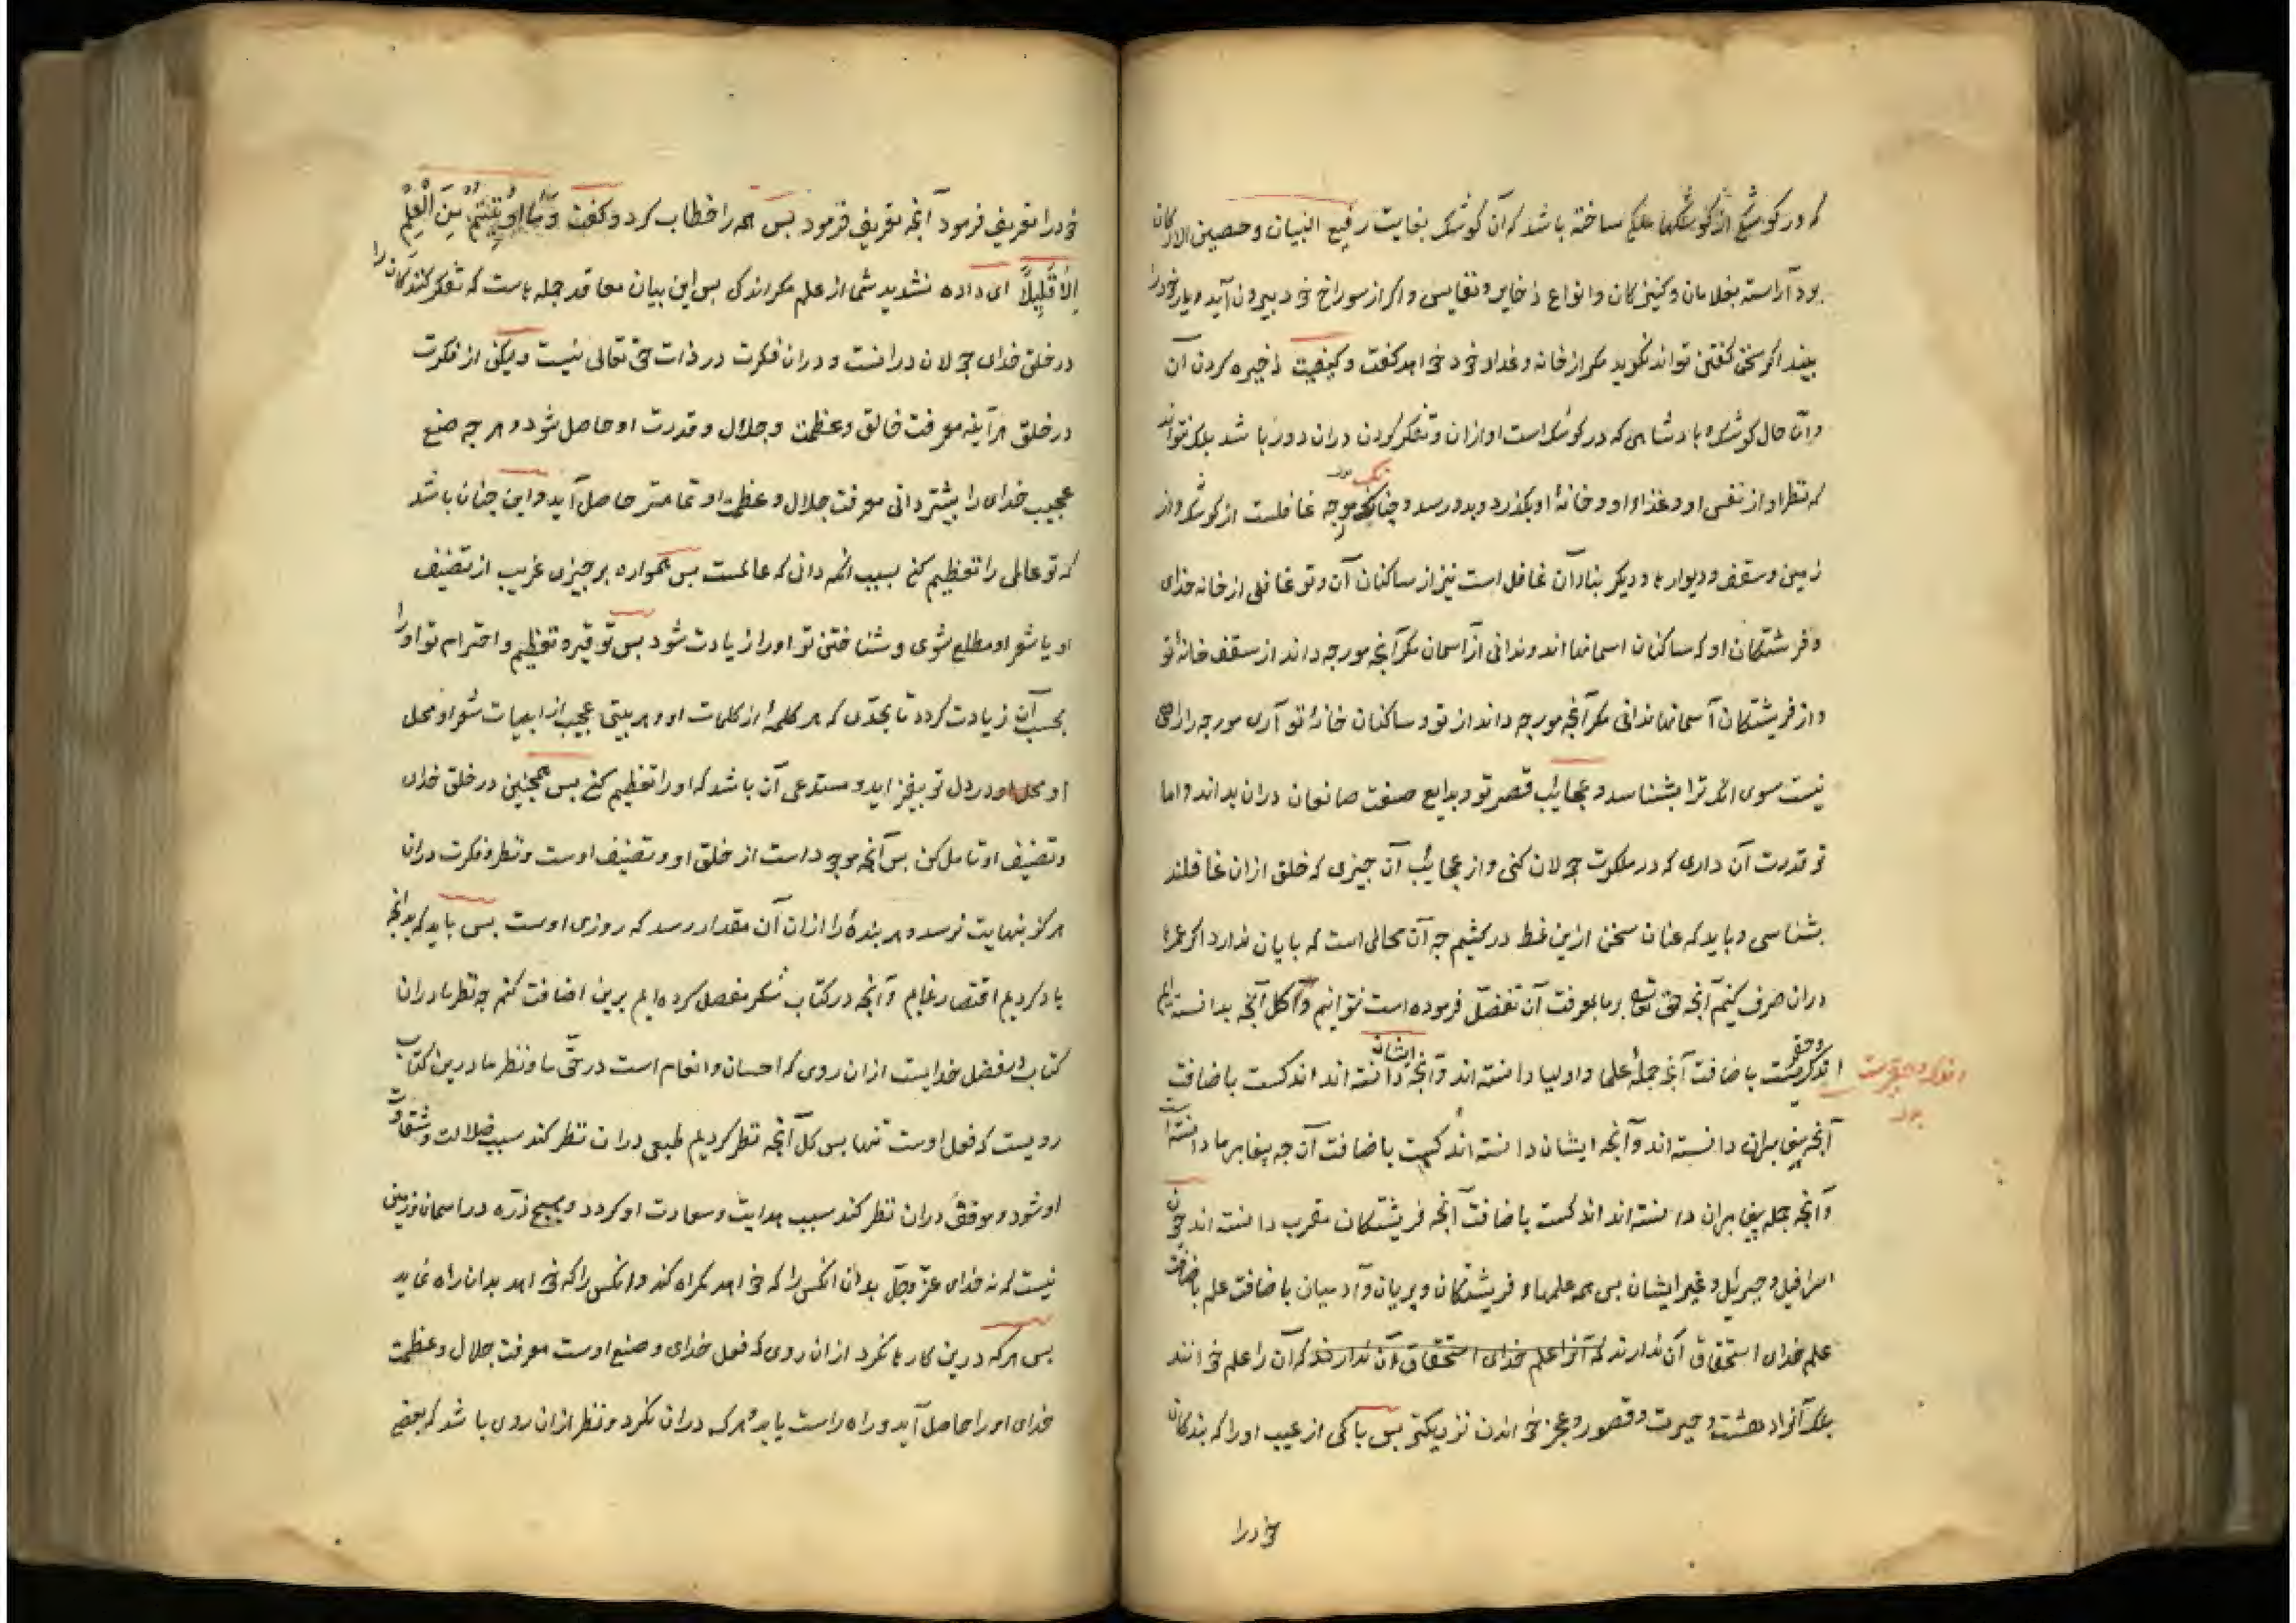 که در کوشکی از کوشکهاء ملکی ساخته باشد که آن کوشک بغایت رفیع البنیان و حصین الارکان
بود آراسته بغلامان و کنیزکان و انواع ذخایر و نفایس و اکر از سوراخ خود بیرون آید و یار خود را
بیند اکر سخن کفتن تواند نکوید مکر از خانه و غداء خود خواهد کفت و کیفیت ذخیره کردن آن
و آن حال کوشک و بادشاهی که در کوشک است او ازان و تفکر کردن دران دور باشد بلک نتواند
که نظر او از نفس او و غذاء او و خانۀ او بکذرد و بدو رسد و چنانکه مورچه غافلست از کوشک و از
زمین و سقف و دیوارها و دیکر بناء آن غافل است نیز از ساکنان آن و تو غافلی از خانه خدای
و فرشتکان او که ساکنان اسمانها اند و ندانی از آسمان مکر آنچه مورچه داند از سقف خانۀ تو
و از فریشتکان آسمانها ندانی مکر آنچه مورچه داند از تو و ساکنان خانۀ تو آری مورچه را راهی
نیست سوی انک ترا بشناسد و عجائب قصر تو و بدایع صنعت صانعان دران بداند و اما
تو قدرت آن داری که در ملکوت جولان کنی و از عجایب آن چیزی که خلق ازان غافلند
بشناسی و باید که عنان سخن ازین نمط درکشیم چه آن مجالی است که پایان ندارد اکر عمرها
دران صرف کنیم آنچه حق تعالی بر ما بمعرفت آن تفضّل فرموده است نتوانیم و کل آنچه بدانسته ایم
اندک و حقیرست باضافت آنچه جملۀ علما و اولیا دانسته اند و آنچه ایشان دانسته اند اندکست باضافت
اندک و حقیرست بود
آنچه پیغامبران دانسته اند و آنچه ایشان دانسته اند کمست باضافت آن چه پیغامبر ما دانسته است
و آنچه جمله پیغامبران دانسته اند اندکست باضافت آنچه فریشتکان مقرب دانسته اند چون
اسرافیل و جبریل و غیر ایشان بس همه علمهاء فریشتکان و پریان و آدمیان باضافت علم باضافت
علم خدای استحقاق آن ندارند که آنرا علم خدای استحقاق آن ندارند که آن را علم خوانند
بلک آنرا دهشت و حیرت و قصور و عجز خواندن نزدیکتر بس پاکی از عیب او را که بندکان
خود را
خود را تعریف فرمود آنچه تعریف فرمود بس همه را خطاب کرد و کفت وَمَا اُوتِیتُمْ مِنَ الْعِلْمِ
اِلاَّ قَلِیلاً ای داده نشدید شما از علم مکر اندکی بس این بیان معاقد جمله هاست که تفکر کنندکان را
در خلق خدای جولان درانست و دران فکرت در ذات حق تعالی نیست و لیکن از فکرت
در خلق هرآینه معرفت خالق و عظمت و جلال و قدرت او حاصل شود و هر چه صنع
عجیب خدای را بیشتر دانی معرفت جلال و عظمت او تمامتر حاصل آید و این چنان باشد
که تو عالمی را تعظیم کنی بسبب انکه دانی که عالمست بس همواره بر چیزی غریب از تصنیف
او یا شعر او مطلع شوی و شناختن تو او را زیادت شود بس توقیر و تعظیم و احترام تو او را
بحسب آن زیادت کردد تا بحدّی که هر کلمۀ از کلمات او و هر بیتی عجیب از ابیات شعر او محل
او محل او در دل تو بیفزاید و مستدعی آن باشد که او را تعظیم کنی بس همچنین در خلق خدای
و تصنیف او تامل کن بس آنچه موجود است از خلق او و تصنیف اوست و نظر و فکرت دران
هرکز بنهایت نرسد و هر بندۀ را ازان آن مقدار رسد که روزی اوست بس باید که بدانچه
یاد کردیم اقتصار نماییم و آنچه در کتاب شکر مفصل کرده ایم برین اضافت کنم چه نظر ما دران
کتاب در فضل خدایست ازان روی که احسان و انعام است در حقّ ما و نظر ما درین کتاب
رویست که فعل اوست تنها بس کل آنچه نظر کردیم طبعی دران نظر کند سبب ضلالت و شقاوت
او شود و موفق دران نظر کند سبب هدایت و سعادت او کردد و هیچ ذرّه در اسمان و زمین
نیست که نه خدای عزّ و جلّ بدان انکس را که خواهد کمراه کند و انکس را که خواهد بدان راه نماید
بس هر که درین کارها نکرد ازان روی که فعل خدای و صنع اوست معرفت جلال و عظمت
خدای او را حاصل آید و راه راست یابد و هر که دران نکرد و نظر ازان روی باشد که بعضی